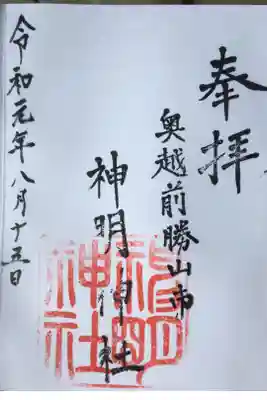 奉拝
奥越前勝山市
神明神社
令和元年八月十五日
神明神社